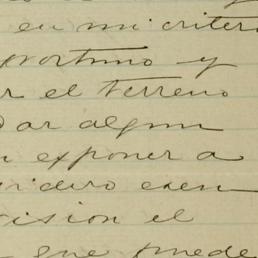 en mi criteri
portuno y
ar el terreno
dar algun
n exponer a
sidero exen
vision el
que puede